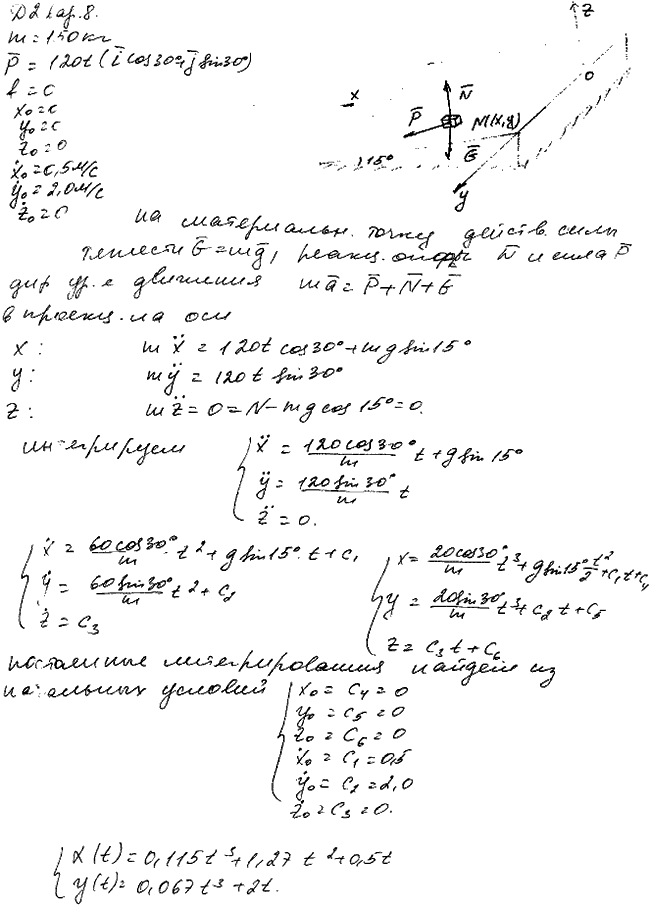 Д2 Вар. 8.
m = 150 кг
P̄ = 120t (ī cos30° + j̄ sin30°)
f = 0
x₀ = 0
y₀ = 0
z₀ = 0
ẋ₀ = 0,5 м/с
ẏ₀ = 2,0 м/с
ż₀ = 0
z
O
x
N̄
P̄
M(x,y)
Ḡ
15°
y
на материальн. точку действ. силы
тяжести Ḡ = mḡ, реакц. опоры N̄ и сила P̄
диф. ур.е движения mā = P̄ + N̄ + Ḡ
в проекц. на оси
x: mẍ = 120t cos30° + mg sin15°
y: mÿ = 120t sin30°
z: mz̈ = 0 = N − mg cos 15° = 0.
интегрируем
ẍ = 120cos30°/m t + g sin 15°
ÿ = 120sin30°/m t
z̈ = 0.
ẋ = 60cos30°/m · t² + g sin15° · t + C₁
ẏ = 60sin30°/m t² + C₂
ż = C₃
x = 20cos30°/m t³ + g sin15° t²/2 + C₁t + C₄
y = 20sin30°/m t³ + C₂t + C₅
z = C₃t + C₆
постоянные интегрирования найдем из
начальных условий
x₀ = C₄ = 0
y₀ = C₅ = 0
z₀ = C₆ = 0
ẋ₀ = C₁ = 0,5
ẏ₀ = C₂ = 2,0
ż₀ = C₃ = 0.
x(t) = 0,115t³ + 1,27 t² + 0,5t
y(t) = 0,067t³ + 2t.